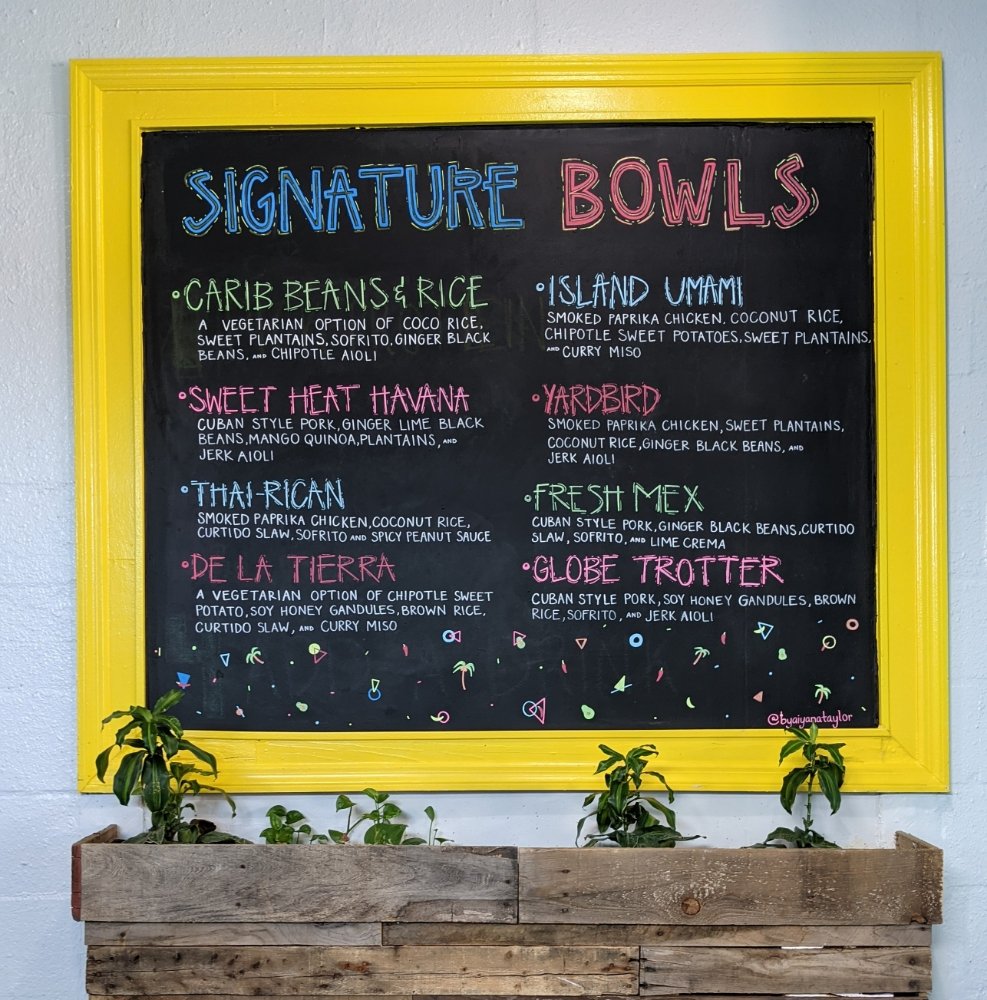 SIGNATURE BOWLS
CARIB BEANS & RICE
A VEGETARIAN OPTION OF COCO RICE,
SWEET PLANTAINS, SOFRITO, GINGER BLACK
BEANS, AND CHIPOTLE AIOLI
SWEET HEAT HAVANA
CUBAN STYLE PORK, GINGER LIME BLACK
BEANS, MANGO QUINOA, PLANTAINS, AND
JERK AIOLI
THAI-RICAN
SMOKED PAPRIKA CHICKEN, COCONUT RICE,
CURTIDO SLAW, SOFRITO AND SPICY PEANUT SAUCE
DE LA TIERRA
A VEGETARIAN OPTION OF CHIPOTLE SWEET
POTATO, SOY HONEY GANDULES, BROWN RICE,
CURTIDO SLAW, AND CURRY MISO
ISLAND UMAMI
SMOKED PAPRIKA CHICKEN, COCONUT RICE,
CHIPOTLE SWEET POTATOES, SWEET PLANTAINS,
AND CURRY MISO
YARDBIRD
SMOKED PAPRIKA CHICKEN, SWEET PLANTAINS,
COCONUT RICE, GINGER BLACK BEANS, AND
JERK AIOLI
FRESH MEX
CUBAN STYLE PORK, GINGER BLACK BEANS, CURTIDO
SLAW, SOFRITO, AND LIME CREMA
GLOBE TROTTER
CUBAN STYLE PORK, SOY HONEY GANDULES, BROWN
RICE, SOFRITO, AND JERK AIOLI
@byaiyanataylor